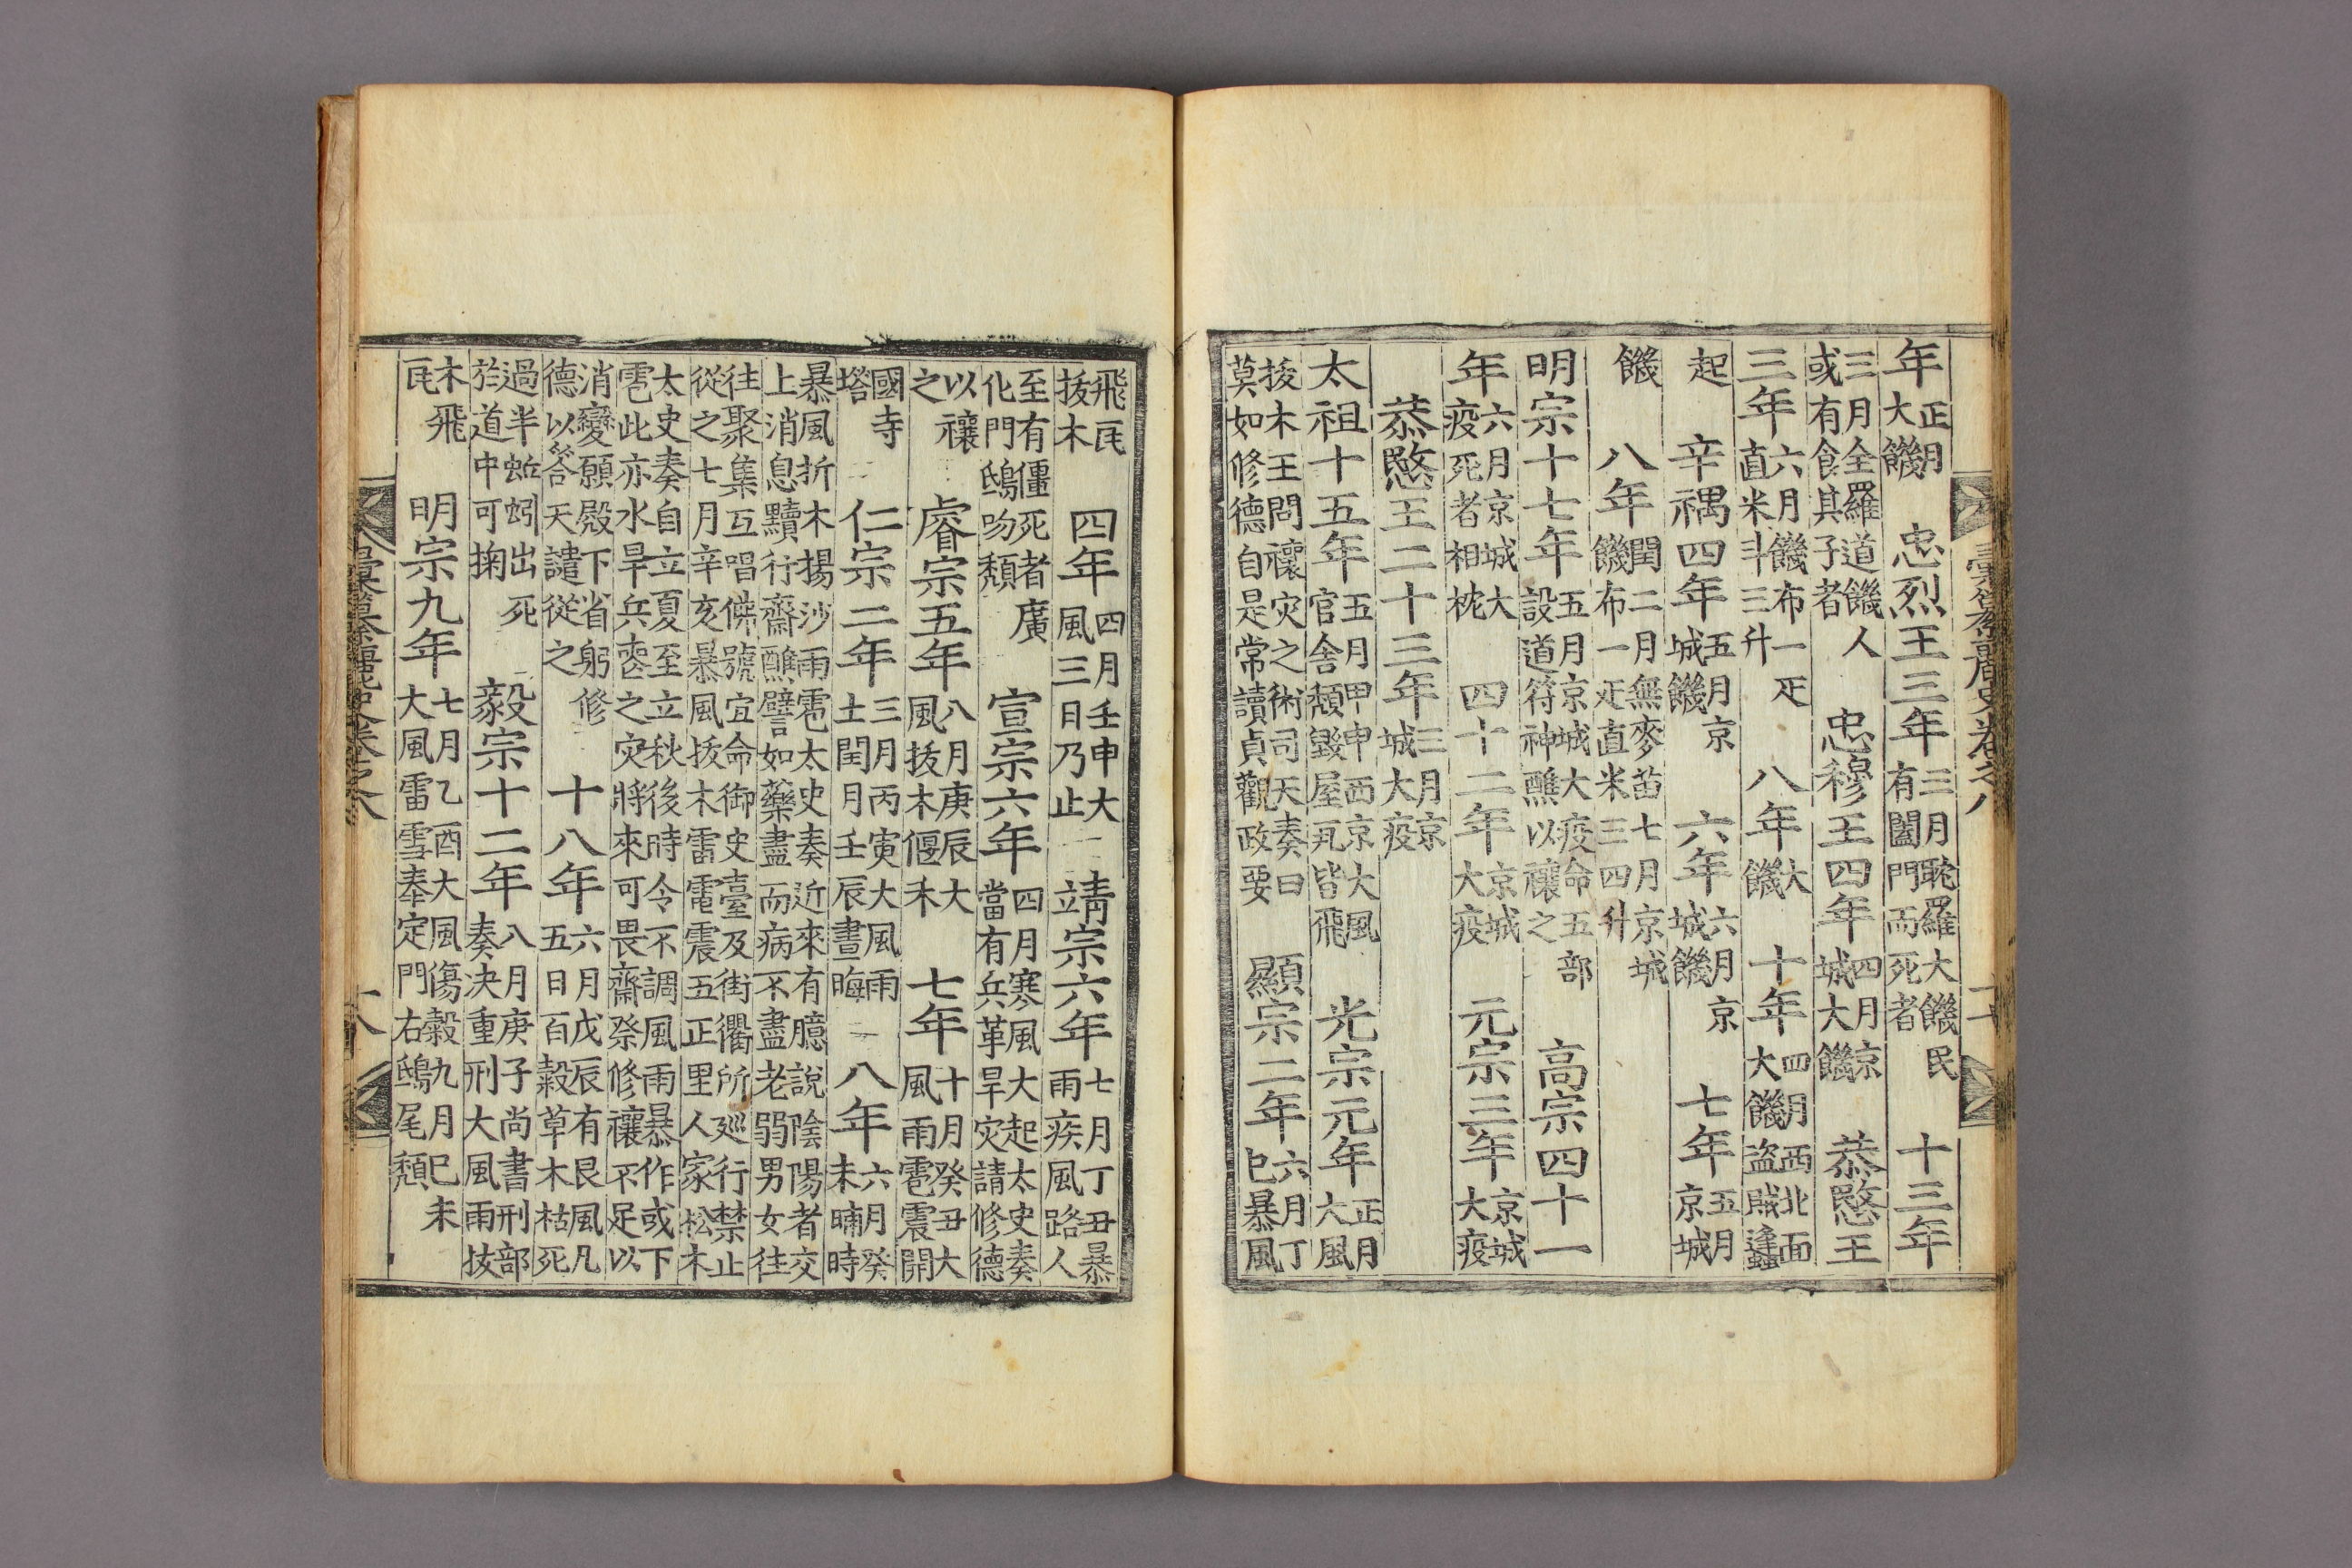 彙纂麗史卷之八 十七
年 正月大饑 忠烈王三年 三月耽羅大饑民有闔門而死者 十三年
三月全羅道饑人或有食其子者 忠穆王四年 四月京城大饑 恭愍王
三年 六月饑布一疋直米斗三升 八年 大饑 十年 四月西北面大饑盜賊蠭
起 辛禑四年 五月京城饑 六年 六月京城饑 七年 五月京城
饑 八年 閏二月無麥苗七月京城饑布一疋直米三四升
明宗十七年 五月京城大疫命五部設道符神醮以禳之 高宗四十一
年 六月京城大疫死者相枕 四十二年 京城大疫 元宗三年 京城大疫
恭愍王二十三年 三月京城大疫
太祖十五年 五月甲申西京大風官舍頹毀屋瓦皆飛 光宗元年 正月大風
拔木王問禳灾之術司天奏曰莫如修德自是常讀貞觀政要 顯宗二年 六月丁巳暴風
飛瓦拔木 四年 四月壬申大風三日乃止 靖宗六年 七月丁丑暴雨疾風路人
至有僵死者廣化門鴟吻頹 宣宗六年 四月寒風大起太史奏當有兵革旱灾請修德
以禳之 睿宗五年 八月庚辰大風拔木偃禾 七年 十月癸丑大風雨雹震開
國寺塔 仁宗二年 三月丙寅大風雨土閏月壬辰晝晦 八年 六月癸未晡時
暴風折木揚沙雨雹太史奏近來有臆說陰陽者交上消息黷行齋醮譬如藥盡而病不盡老弱男女往
往聚集互唱佛號宜命御史臺及街衢所廵行禁止從之七月辛亥暴風拔木雷電震五正里人家松木
太史奏自立夏至立秋後時令不調風雨暴作或下雹此亦水旱兵喪之灾將來可畏齋祭修禳不足以
消變願殿下省躬修德以答天譴從之 十八年 六月戊辰有艮風凡五日百穀草木枯死
過半蚯蚓出死於道中可掬 毅宗十二年 八月庚子尚書刑部奏决重刑大風雨拔
木飛瓦 明宗九年 七月乙酉大風傷穀九月己未大風雷雪奉定門右鴟尾頹
彙纂麗史卷之八 十八